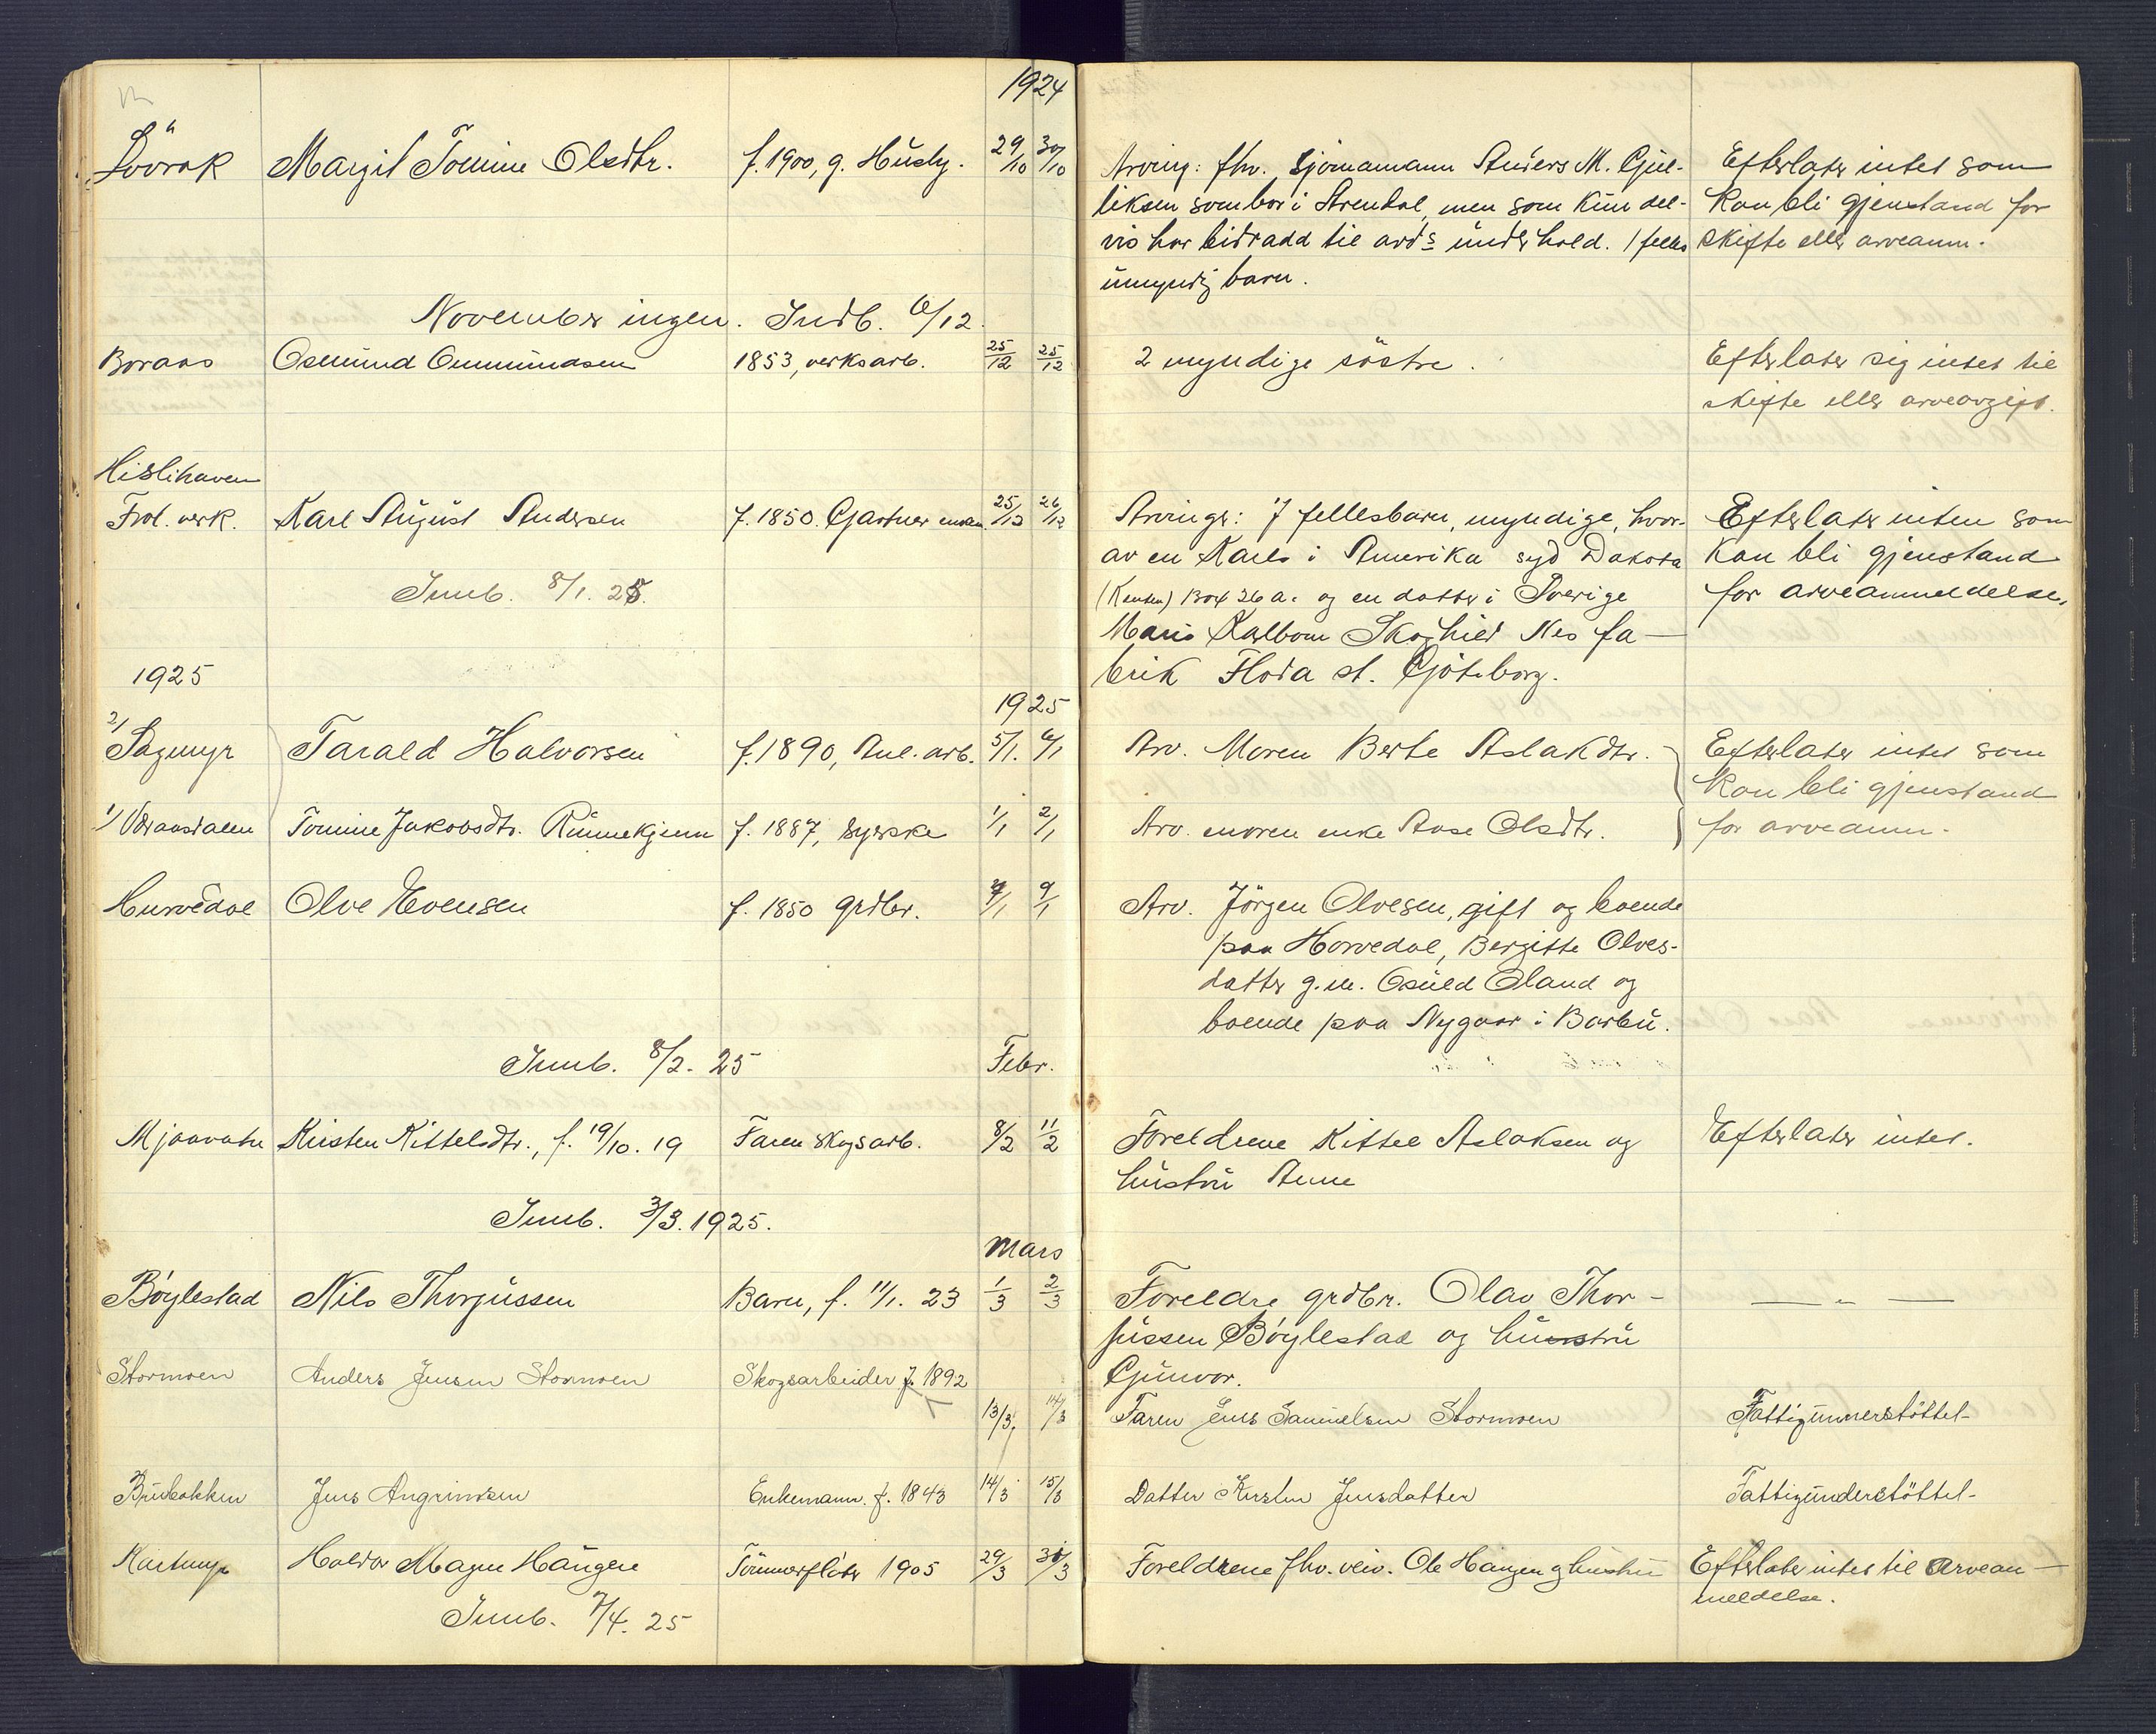 1924
Lövrak Margit Tomine Olsdtr. f. 1900, g. Husby. 29/10 30/10 Arving: fhv. Sjömamann Anders M. Gjul- Efterlater intet som
liksen som bor i Arendal, men som kun del- kan bli gjenstand for
vis har bidradd til avds underhold. 1 felles skifte eller arveanm.
umyndig barn.
November ingen. Indb. 6/12.
Boraas Osmund Ommundsen 1853, verksarb. 25/12 25/12 2 myndige söstre. Efterlater sig intet til
skifte eller arveavgift.
Hislihaven
Frol. verk. Karl August Andersen f. 1850. Gartner enkem. 25/12 26/12 Arvinger: 7 fellesbarn, myndige, hvor- Efterlater inten som
av en Karls i Amerika syd Dakota kan bli gjenstand
Innb. 8/1. 25. Box 26 a. og en datter i Sverige for arveanmeldelse.
Maris Karlbom Skoghild Nes fa-
1925 brik Floda st. Gjöteborg.
1925
2/ Sagmyr Tarald Halvorsen f. 1890, Anl. arb. 5/1. 6/1 Arv. Moren Berte Aslakdtr. Efterlater intet som
kan bli gjenstand
1/ Tomine Jakobsdtr. Rünnekjenn f. 1887, syerske 1/1 2/1 Arv. moren enke Aase Olsdtr. for arveanm.
Hurvedal Olve Evensen f. 1850 grdbr. 7/1 9/1 Arv. Jörgen Olvesen, gift og boende
paa Horvedal, Bergitte Olves-
datter g.m. Osuld Oland og
boende paa Nygaar i Barbu.
Innb. 8/2. 25 Febr.
Mjaavatn Kirsten Kittelsdtr., f. 19/10. 19 Faren skogsarb. 8/2 11/2 Foreldrene Kittel Aslaksen og Efterlater intet.
hustru Anne
Innb. 3/3. 1925.
Mars
Bøylestad Nils Thorjussen Barn, f. 11/1. 23 1/3 2/3 Foreldre grdbr. Olav Thor- — „ —
jussen Bøylestad og hustru
Stormoen Anders Jensen Stormoen Skogsarbeider f. 1892 Gunvor.
13/3. 14/3 Faren Jens Samuelsen Stormoen Fattigunnerstöttet-
Brubakken Jens Angrimsen Enkemann. f. 1843 14/3 15/3 Datter Kirsten Jensdatter Fattigunderstöttet-
Kartmyr Halvor Magne Haugen Tömmerfløter 1905 29/3 31/3 Foreldrene fhv. veiv. Ole Haugen g hustru Efterlater intet til arvean-
meldelse.
Innb. 7/4. 25